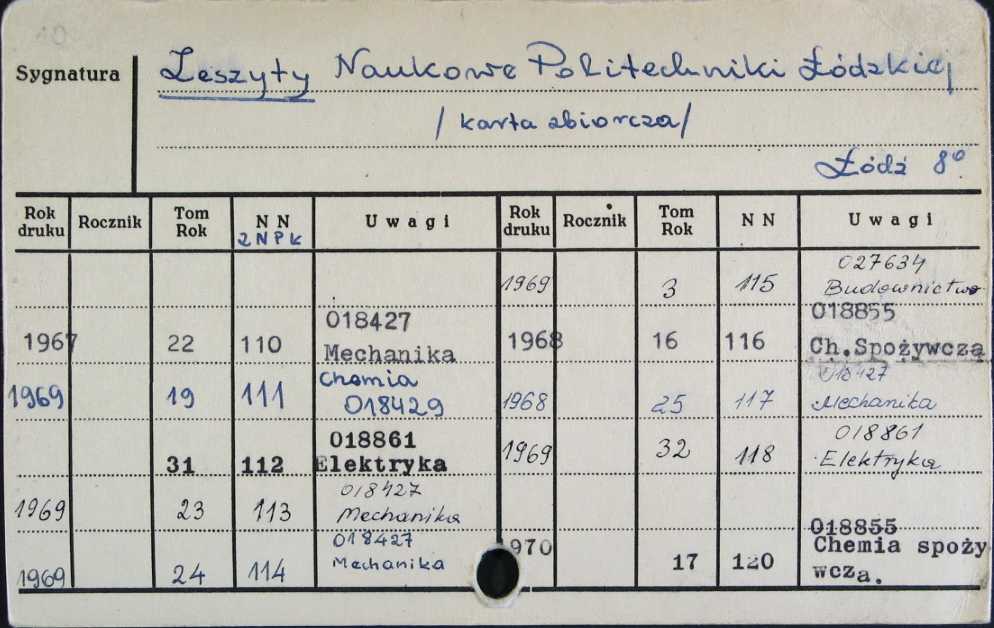 Sygnatura
Zeszyty Naukowe Politechniki Łódzkiej
/ karta zbiorcza /
Łódź 8°
Rok druku Rocznik Tom Rok NN ZNPŁ Uwagi Rok druku Rocznik Tom Rok NN Uwagi
1969 3 115 027634 Budownictwo
1967 22 110 018427 Mechanika 1968 16 116 018855 Ch.Spożywczą
1969 19 111 Chemia 018429 1968 25 117 018427 Mechanika
31 112 018861 Elektryka 1969 32 118 018861 Elektryka
1969 23 113 018427 Mechanika
1969 24 114 018427 Mechanika 970 17 120 018855 Chemia spoży wcza.